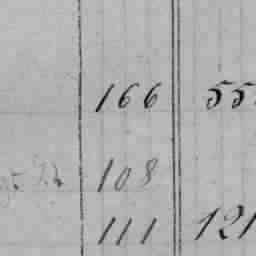 166 55
108
111 121